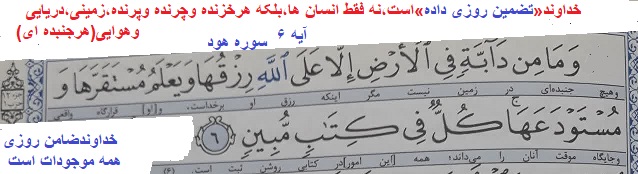 خداوند«تضمین روزی داده»است،نه فقط انسان ها،بلکه هرخزنده وچرنده وپرنده،زمینی،دریایی
وهوایی(هرجنبده ای)
آیه ۶ سوره هود
وَمَا مِن دَآبَّةٍ فِي ٱلْأَرْضِ إِلَّا عَلَى ٱللَّهِ رِزْقُهَا وَيَعْلَمُ مُسْتَقَرَّهَا وَ
وهیچ جنبده‌ای در زمین نیست مگر اینکه رزق او برخداست، و[او] قرارگاه واقعی
مُسْتَوْدَعَهَا كُلٌّ فِي كِتَٰبٍ مُّبِينٍ ٦
وجایگاه موقت آنان را می‌داند؛ همه [این امور]در کتابی روشن ثبت است. (۶)
خداوندضامن روزی
همه موجودات است